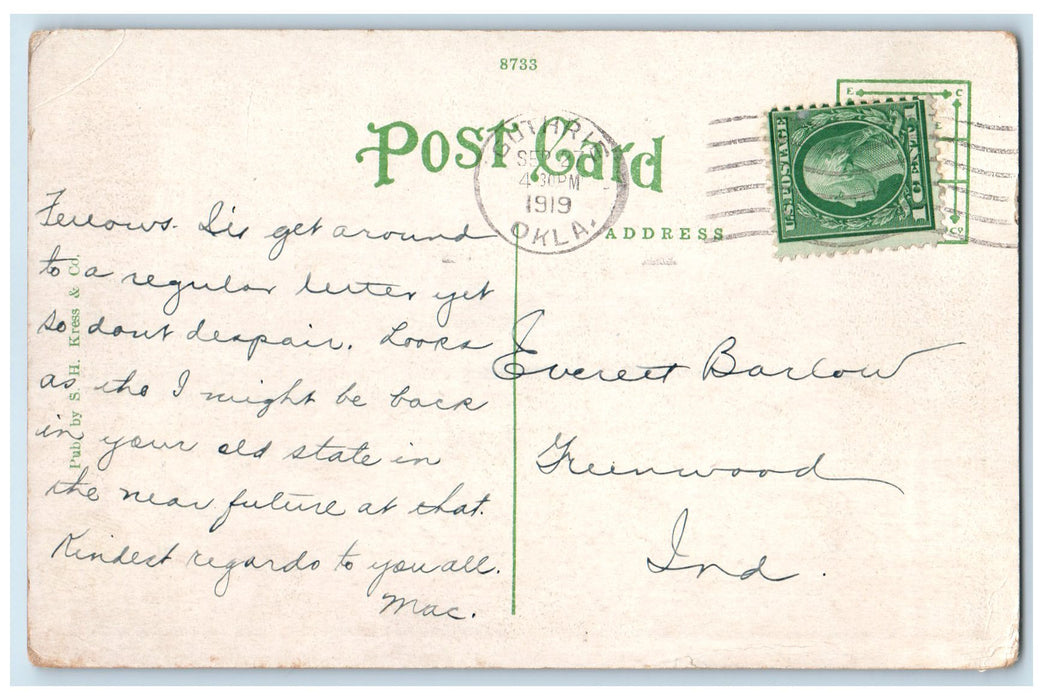 8733
POST CARD
GUTHRIE
SEP
4-30PM
1919
OKLA.
U.S. POSTAGE
1 CENT 1
ADDRESS
Pub. by S. H. Kress & Co.
Fellows. I'll get around
to a regular letter yet
so dont despair. Looks
as tho I might be back
in your old state in
the near future at that.
Kindest regards to you all.
Mac.
Everett Barlow
Greenwood
Ind.